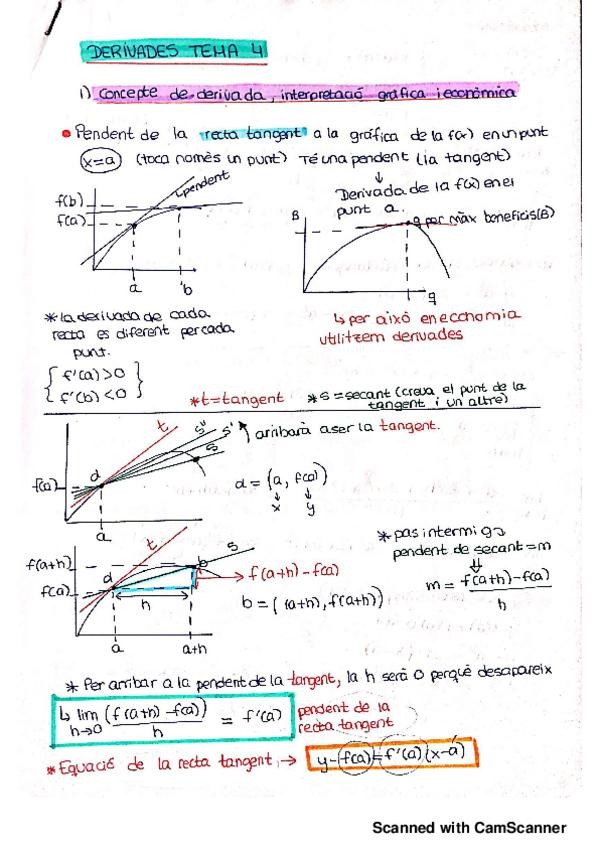 DERIVADES TEMA 4
1) Concepte de derivada, interpretació gráfica i econòmica
• Pendent de la recta tangent a la gráfica de la f(x) en un punt
x=a (toca només un punt) Té una pendent (la tangent)
pendent
f(b)
f(a)
a
b
Derivada de la f(x) en el
punt a.
B
q per màx beneficis(B)
q
*la derivada de cada
recta es diferent per cada
punt.
f'(a)>0
f'(b)<0
↳ per això en economia
utilitzem derivades
*t=tangent
*s=secant (creua el punt de la
tangent i un altre)
t
s''
s'
s
arribarà a ser la tangent.
f(a)
d
a
d = (a, f(a))
x y
f(a+h)
f(a)
t
d
b
s
h
a
a+h
f(a+h)-f(a)
b = ((a+h), f(a+h))
*pas intermig
pendent de secant=m
m = f(a+h)-f(a)
h
* Per arribar a la pendent de la tangent, la h serà 0 perquè desapareix
↳ lim (f(a+h)-f(a)) = f'(a)
h→0 h
pendent de la
recta tangent
*Equació de la recta tangent → y-f(a)=f'(a)(x-a)
Scanned with CamScanner